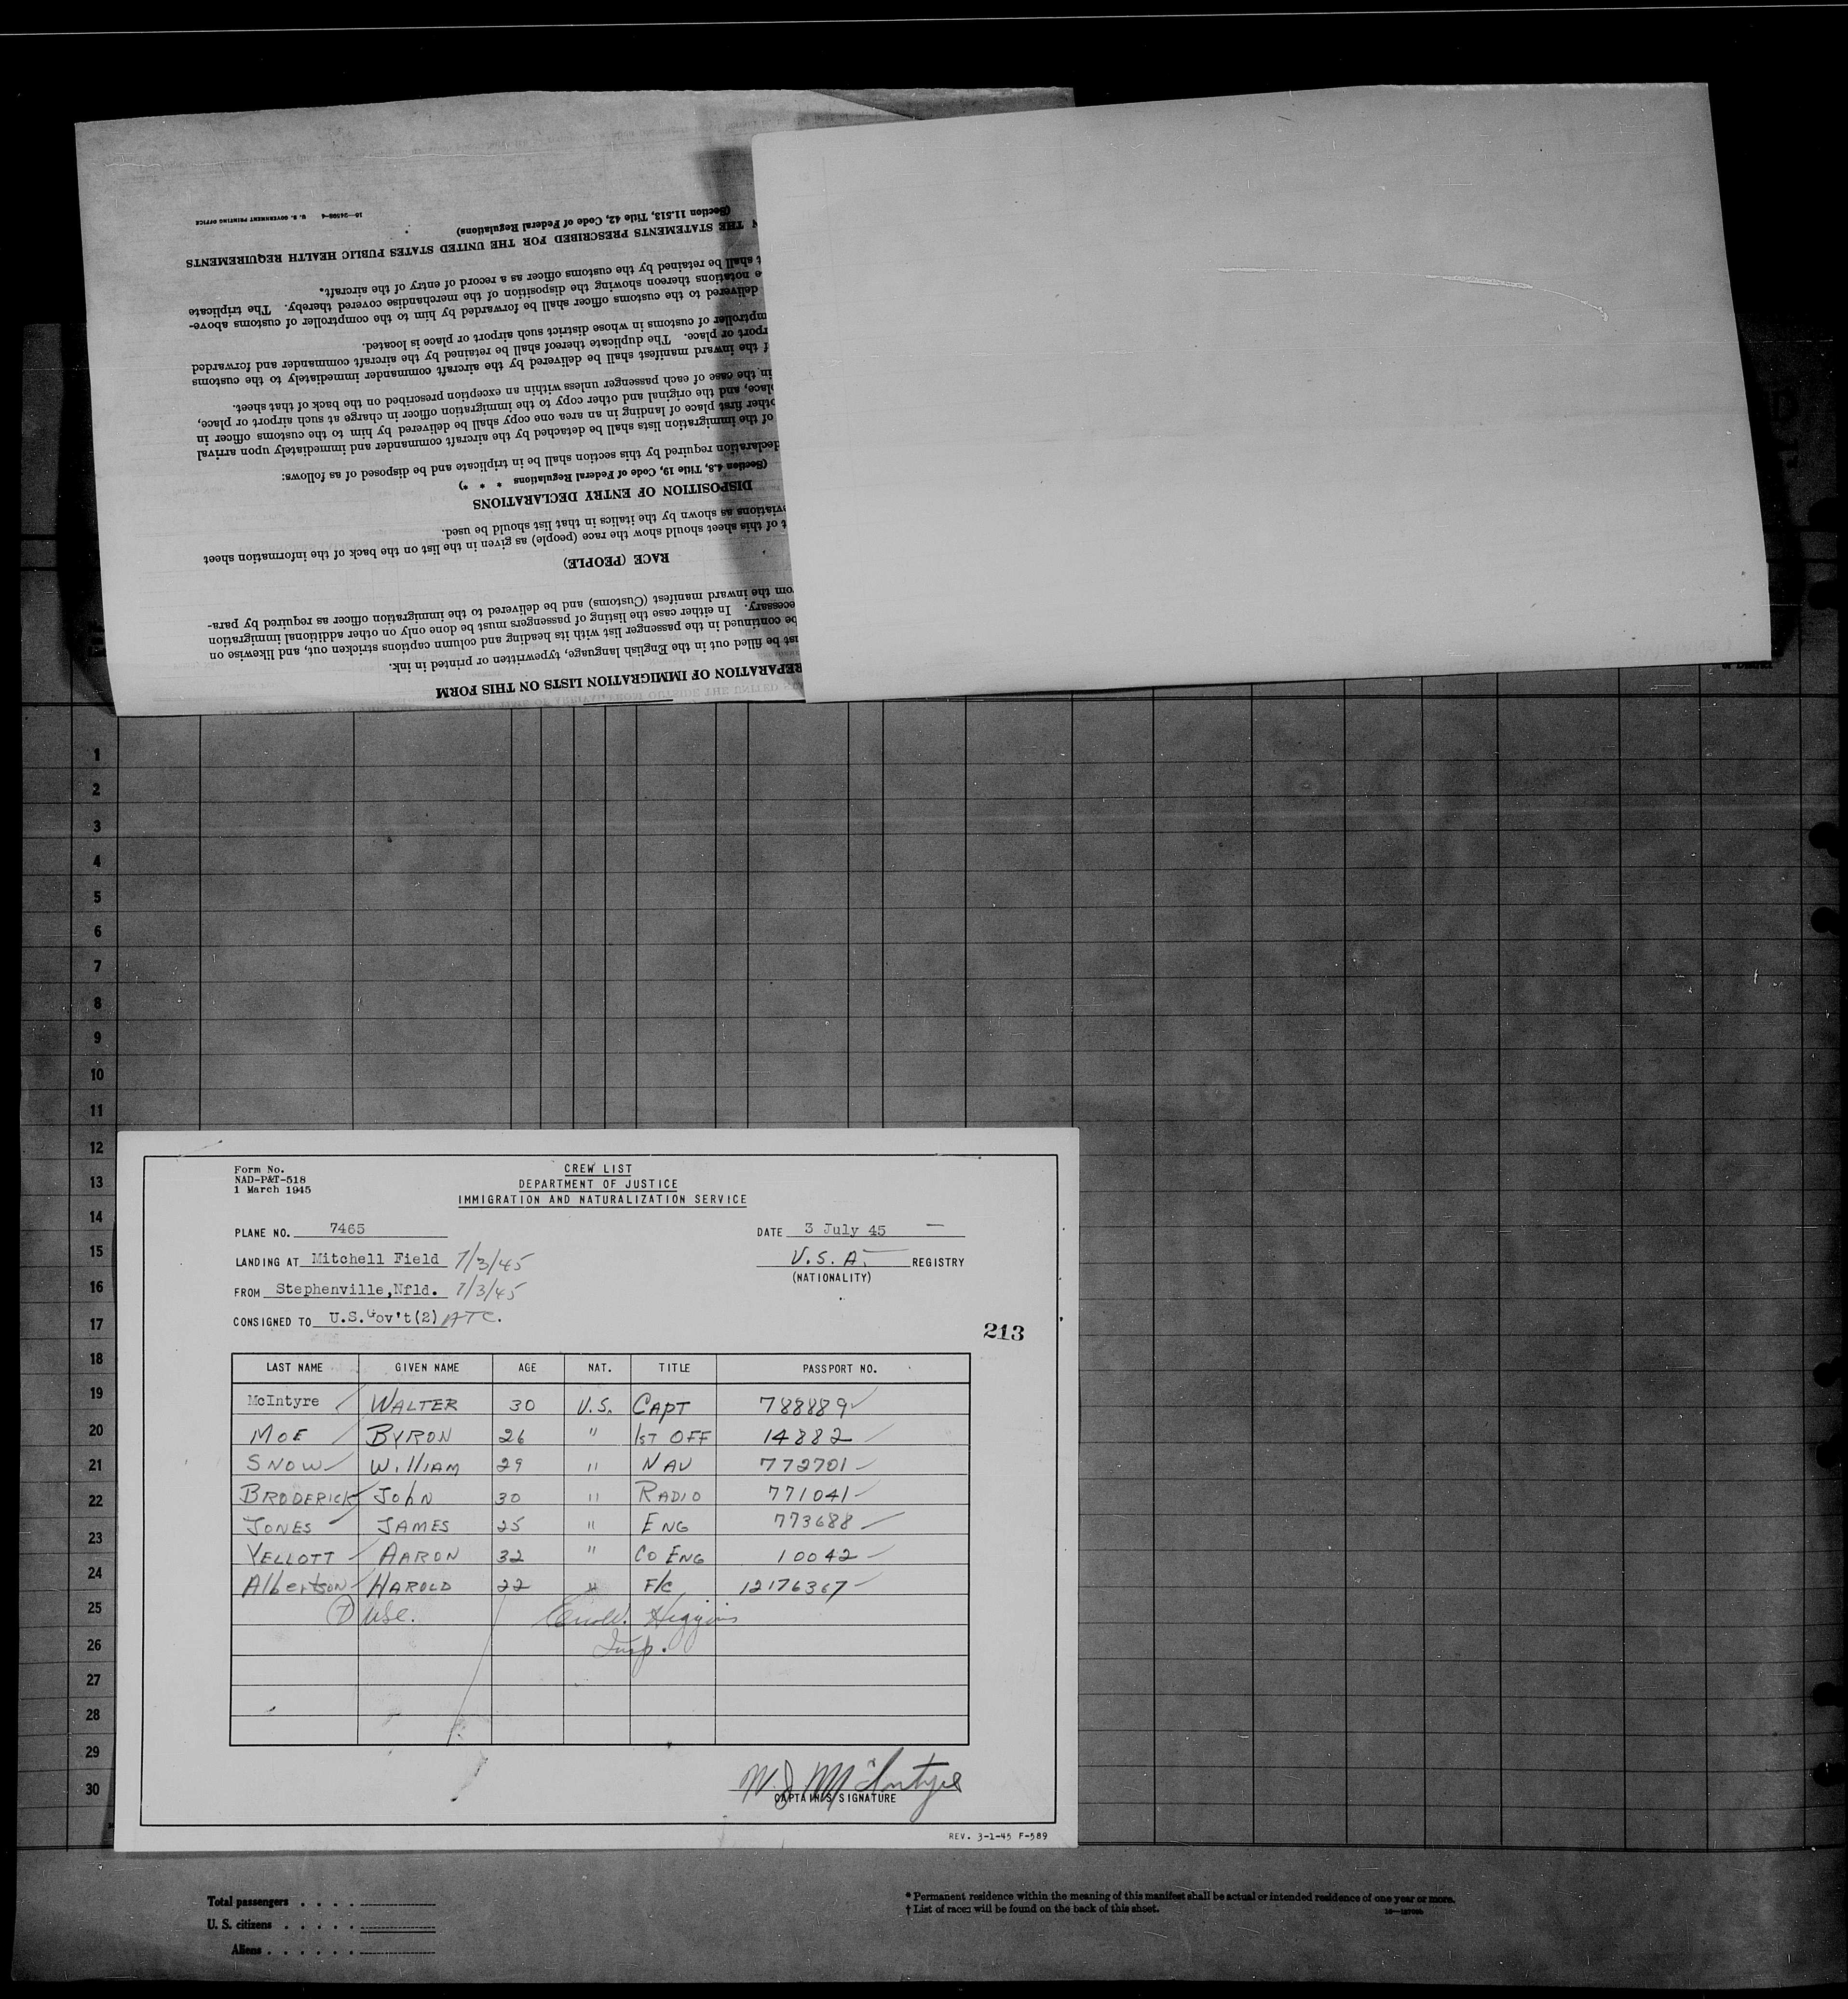 16—24598-4 U. S. GOVERNMENT PRINTING OFFICE
REPARATION OF IMMIGRATION LISTS ON THIS FORM
st be filled out in the English language, typewritten or printed in ink.
be continued in the passenger list with its heading and column captions stricken out, and likewise on
ecessary. In either case the listing of passengers must be done only on other additional immigration
om the inward manifest (Customs) and be delivered to the immigration officer as required by para-
RACE (PEOPLE)
t of this sheet should show the race (people) as given in the list on the back of the information sheet
viations as shown by the italics in that list should be used.
DISPOSITION OF ENTRY DECLARATIONS
(Section 4.8, Title 19, Code of Federal Regulations * * *)
declaration required by this section shall be in triplicate and be disposed of as follows:
of the immigration lists shall be detached by the aircraft commander and immediately upon arrival
other first place of landing in an area one copy shall be delivered by him to the customs officer in
place, and the original and other copy to the immigration officer in charge at such airport or place,
in the case of each passenger unless within an exception prescribed on the back of that sheet.
f the inward manifest shall be delivered by the aircraft commander immediately to the customs
rport or place. The duplicate thereof shall be retained by the aircraft commander and forwarded
mptroller of customs in whose district such airport or place is located.
delivered to the customs officer shall be forwarded by him to the comptroller of customs above-
e notations thereon showing the disposition of the merchandise covered thereby. The triplicate
t shall be retained by the customs officer as a record of entry of the aircraft.
N THE STATEMENTS PRESCRIBED FOR THE UNITED STATES PUBLIC HEALTH REQUIREMENTS
(Section 11.513, Title 42, Code of Federal Regulations)
1
2
3
4
5
6
7
8
9
10
11
12
13
14
15
16
17
18
19
20
21
22
23
24
25
26
27
28
29
30
Form No.
NAD-P&T-518
1 March 1945
CREW LIST
DEPARTMENT OF JUSTICE
IMMIGRATION AND NATURALIZATION SERVICE
PLANE NO. 7465 DATE 3 July 45 —
LANDING AT Mitchell Field 7/3/45 U.S.A. REGISTRY
(NATIONALITY)
FROM Stephenville, Nfld. 7/3/45
CONSIGNED TO U.S.Gov't(2) ATC.
213
LAST NAME GIVEN NAME AGE NAT. TITLE PASSPORT NO.
McIntyre WALTER 30 U.S. CAPT 788889
MOE BYRON 26 " 1ST OFF 14882
SNOW WilliAM 29 " NAV 772701
BRODERICK JohN 30 " RADIO 771041
JONES JAMES 25 " ENG 773688
YELLOTT AARON 32 " CO ENG 10042
AlbertsoN HAROLD 22 " F/C 12176367
7 USC. Higgins
Insp.
W. J. McIntyre
CAPTAIN'S SIGNATURE
REV. 3-1-45 F-589
Total passengers . . . .
U. S. citizens . . . . .
Aliens . . . . . .
* Permanent residence within the meaning of this manifest shall be actual or intended residence of one year or more.
† List of races will be found on the back of this sheet.